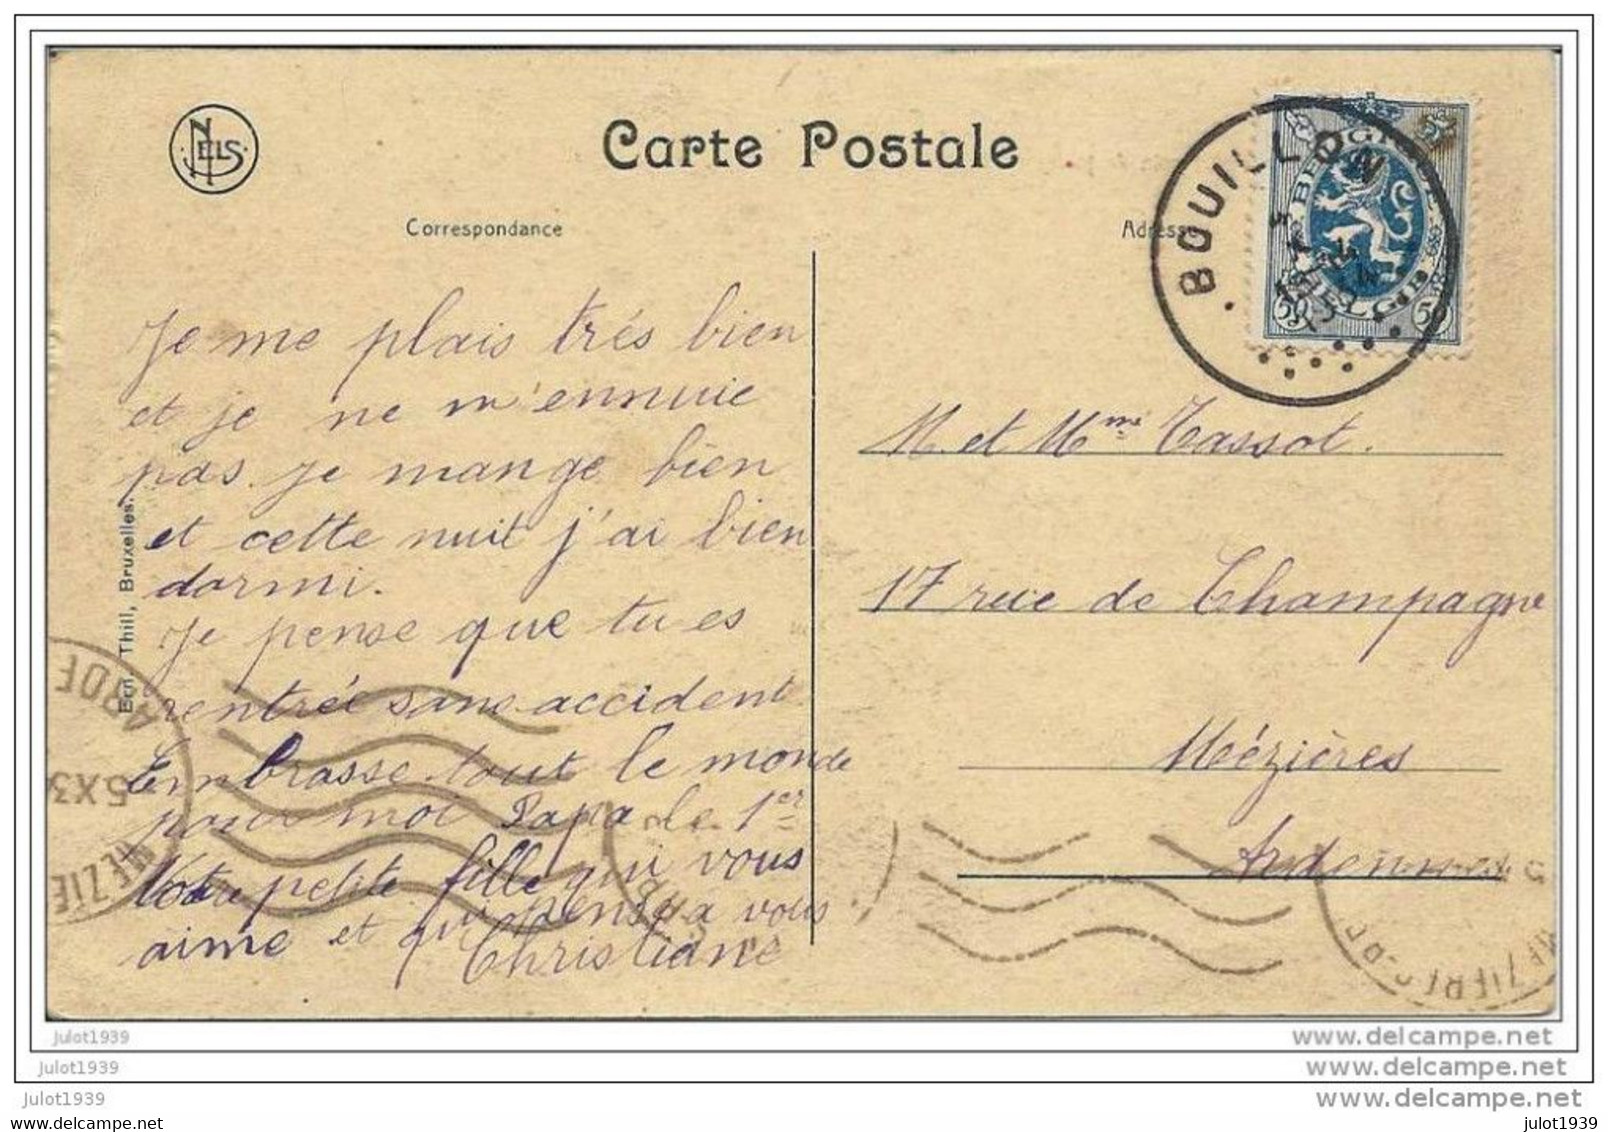 NELS
Carte Postale
Correspondance
Adresse
BOUILLON
BELGIQUE
BELGIE
50 50
Je me plais très bien
et je ne m'ennuie
pas. je mange bien
et cette nuit j'ai bien
dormi.
Je pense que tu es
rentrée sans accident
Embrasse tout le monde
pour moi Papa le 1er
Votre petite fille qui vous
aime et qui pense a vous
Christiane
Ern. Thill, Bruxelles.
M. et Mme Tassot.
17 rue de Champagne
Mézières
Ardennes
julot1939
www.delcampe.net
julot1939
www.delcampe.net
julot1939
www.delcampe.net
julot1939
julot1939